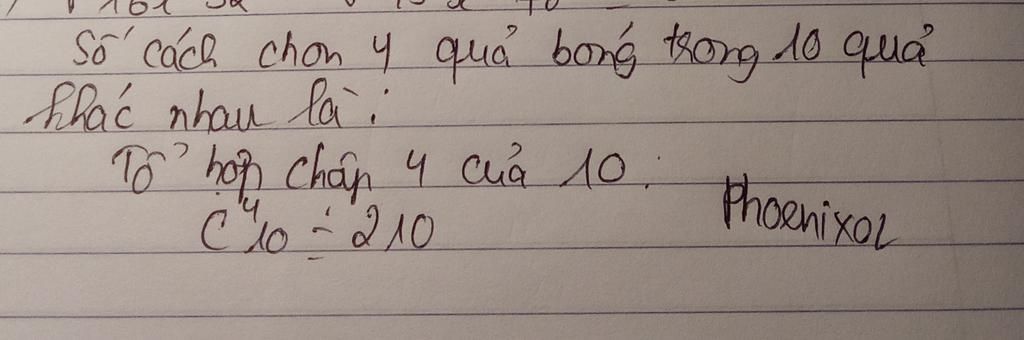 Số cách chon 4 quả bong trong 10 quả
khác nhau là:
Tổ hợp chập 4 của 10.
C⁴10 = 210
Phoenixol